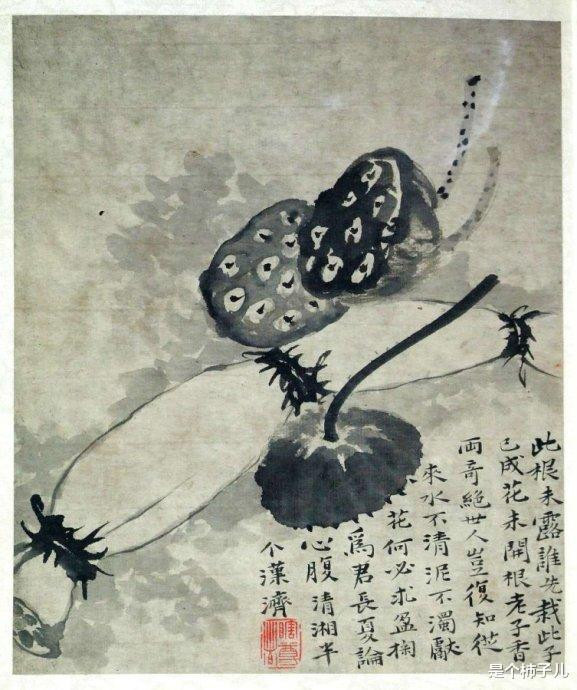 此根未露誰先栽此子
已成花未開根老子香
兩奇絕世人豈復知從
來水不清泥不濁獻
花何必求盈掬
爲君長夏論
心腹清湘半
个漢濟
瞎尊者
是个柿子儿